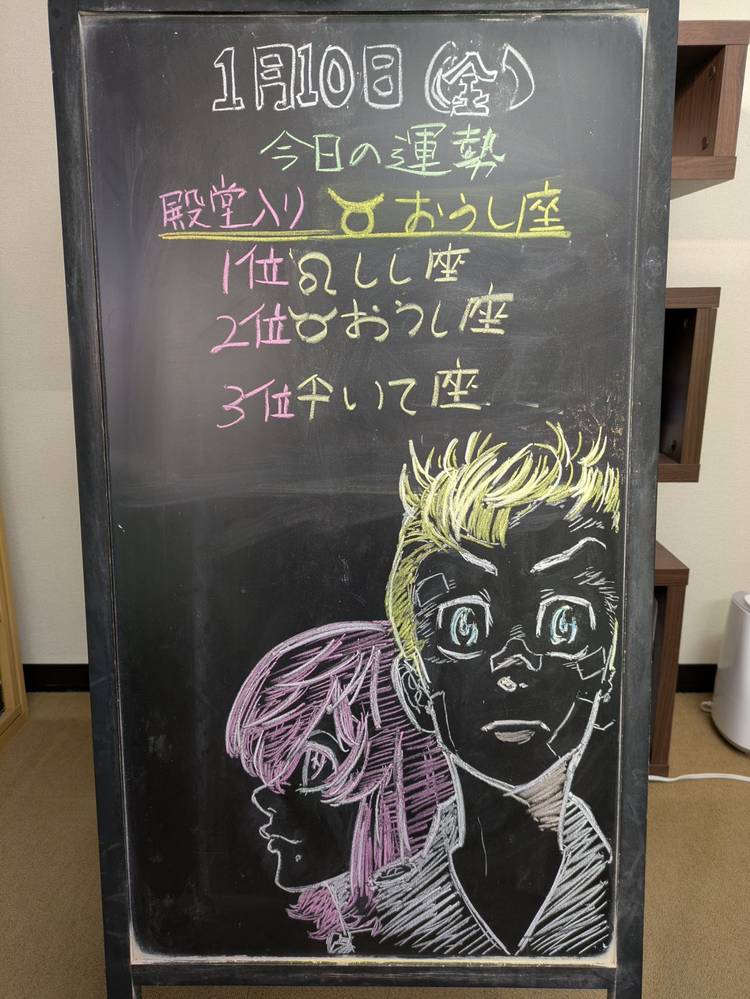 1月10日(金)
今日の運勢
殿堂入り ♉ おうし座
1位 ♌ しし座
2位 ♉ おうし座
3位 ♐ いて座